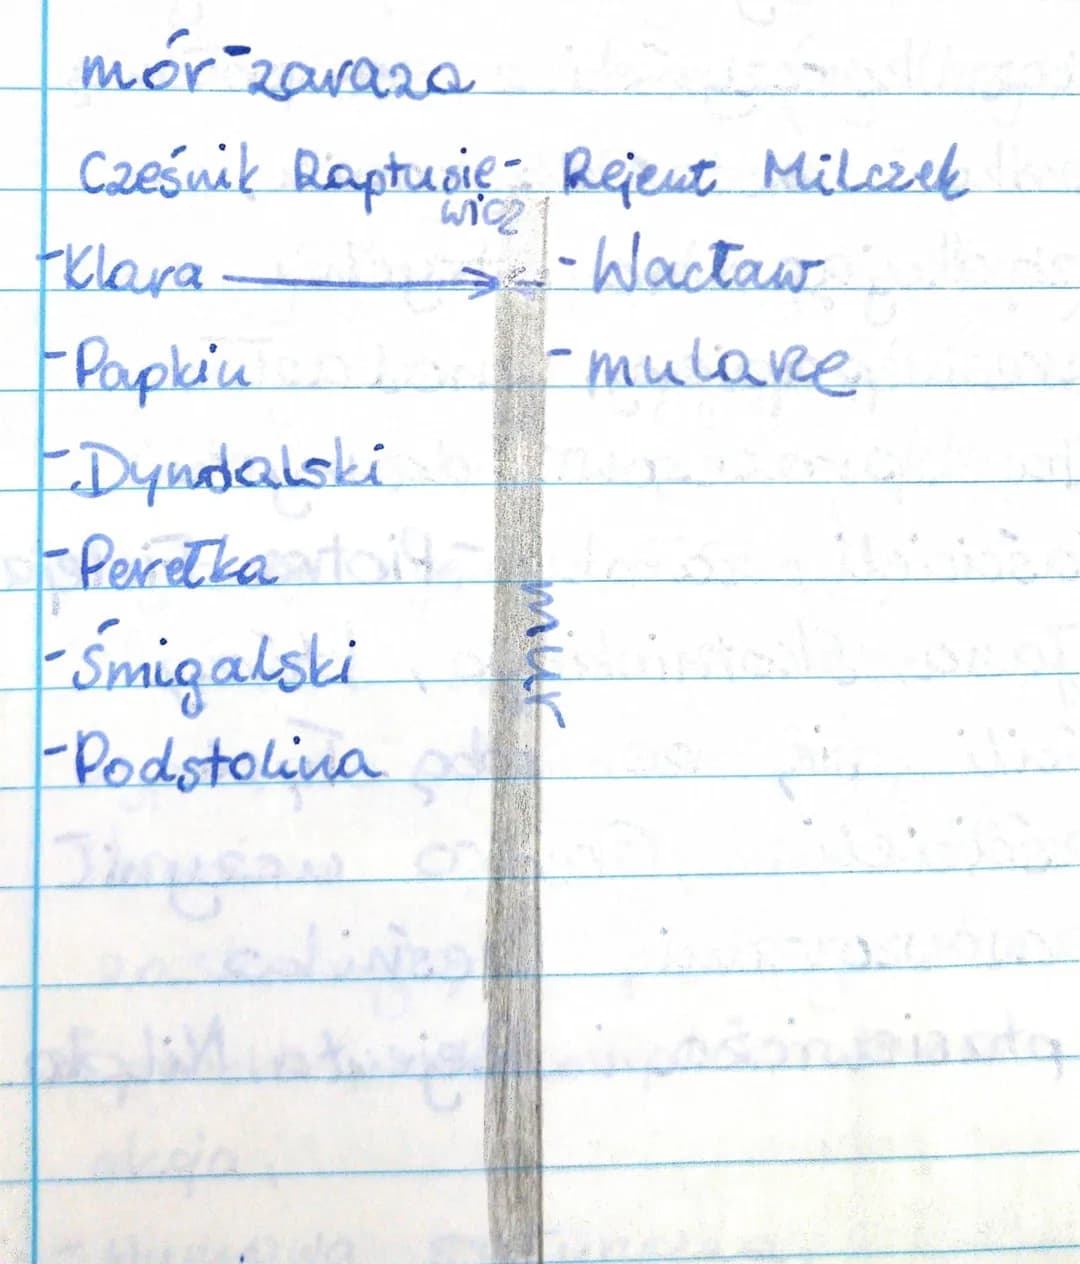 mór - zaraza
Cześnik Raptusie- Rejent Milczek
wicz
- Klara - Wacław
- Papkin - mularze
- Dyndalski
- Perełka
mur
- Śmigalski
- Podstolina